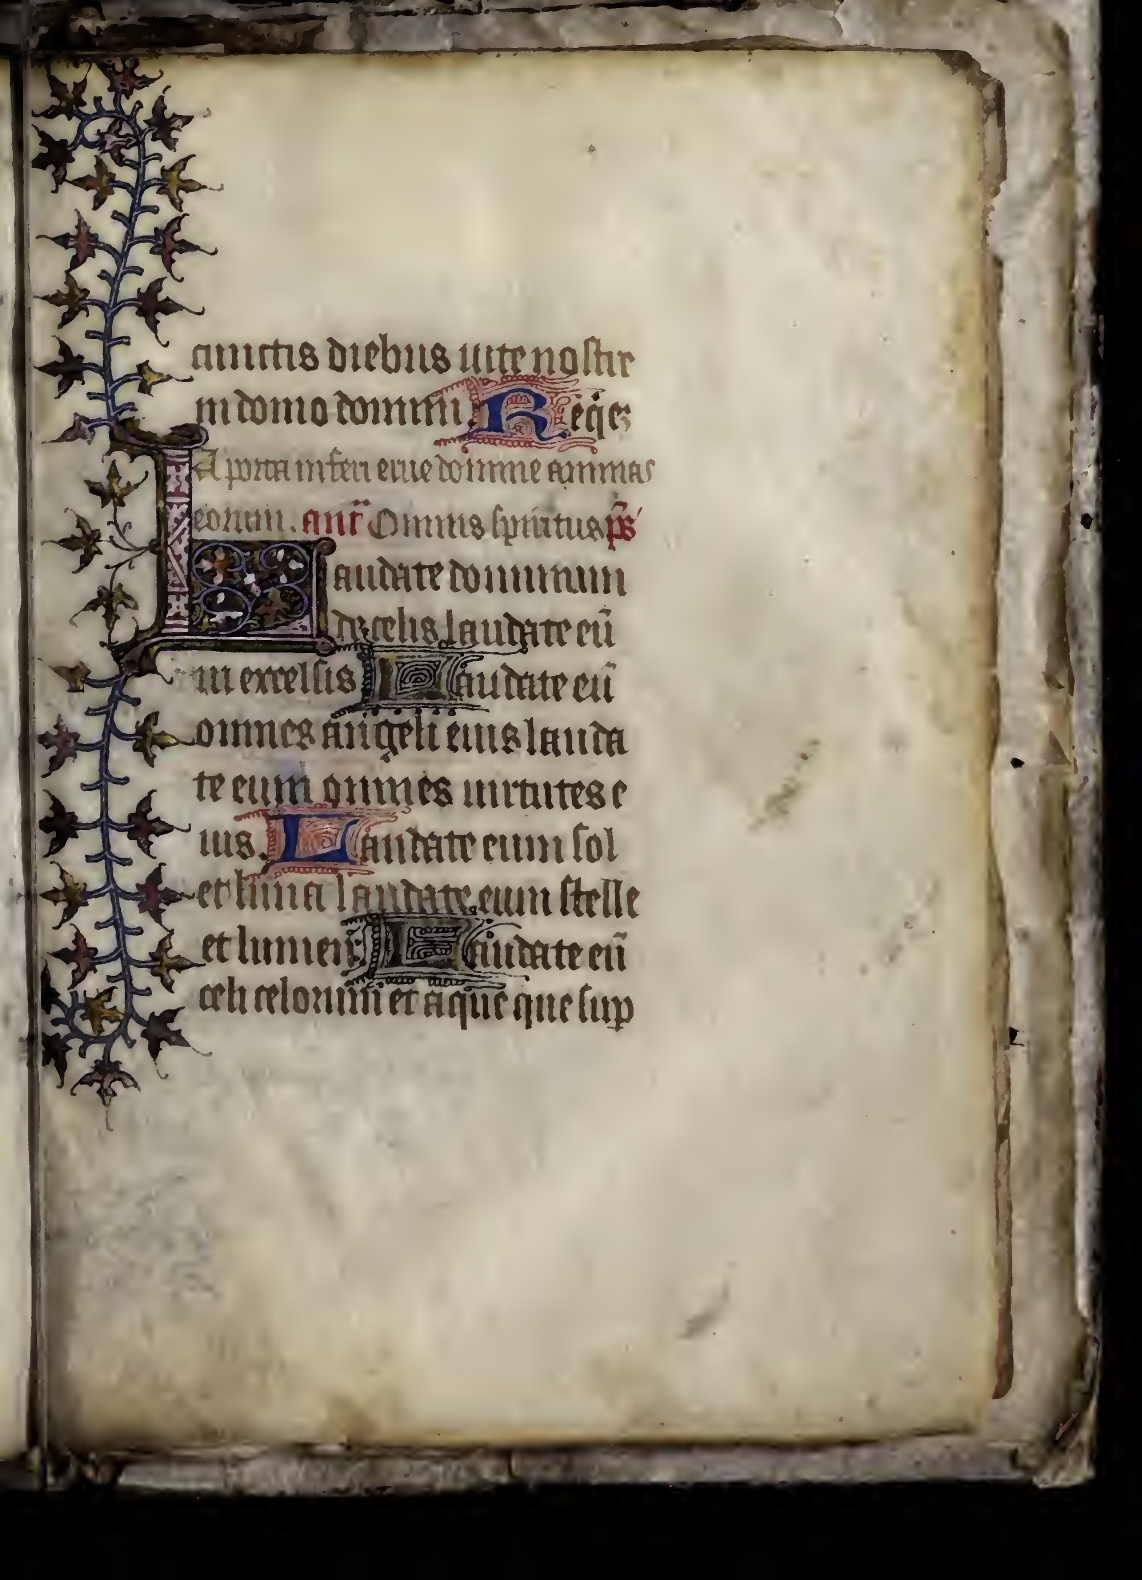 cunctis diebus uite nostre
in domo domini. Reqē
A porta inferi erue domine animas
eorum. anī Omnis spiritus p̄s
Laudate dominum
de celis laudate eū
in excelsis Laudate eū
omnes angeli eius lauda
te eum omnes uirtutes e
ius. Laudate eum sol
et luna laudate eum stelle
et lumen. Laudate eū
celi celorum et aque que sup